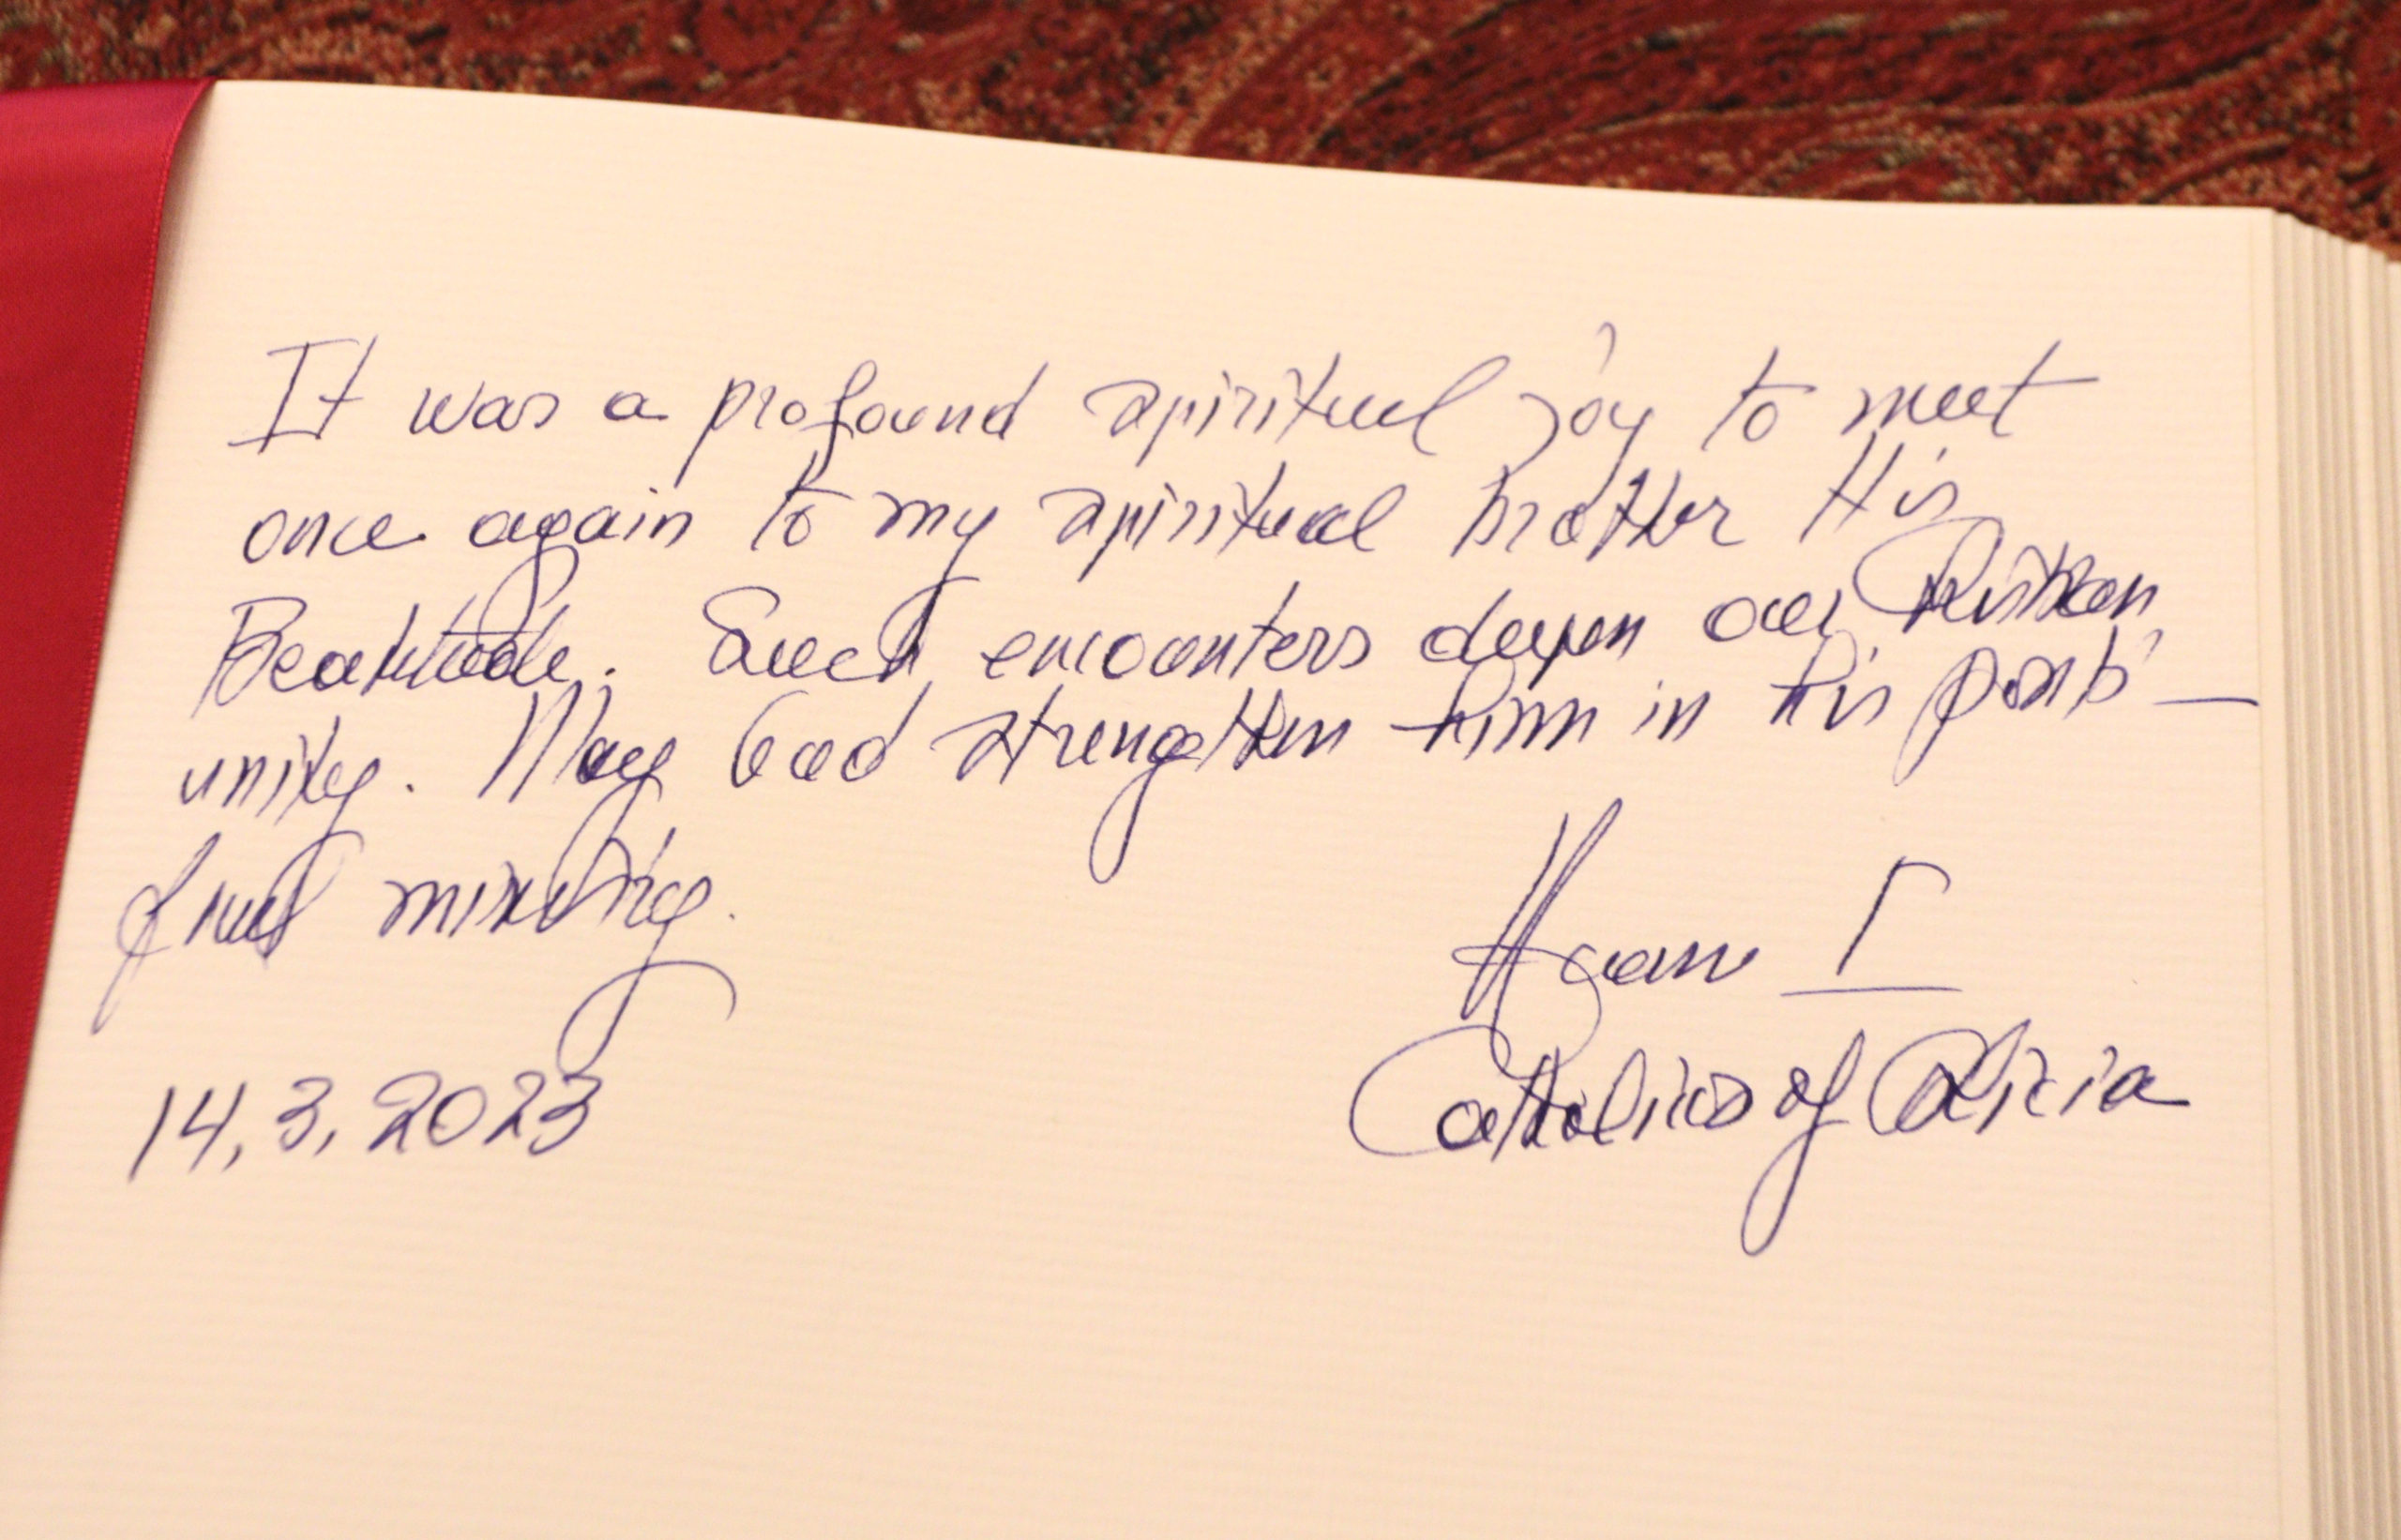 It was a profound spiritual joy to meet
once again to my spiritual brother His
Beatitude. Such encounters deepen our Christian
unity. May God strengthen him in his ponti-
ficial ministry.
Aram I
Catholicos of Cilicia
14,3,2023